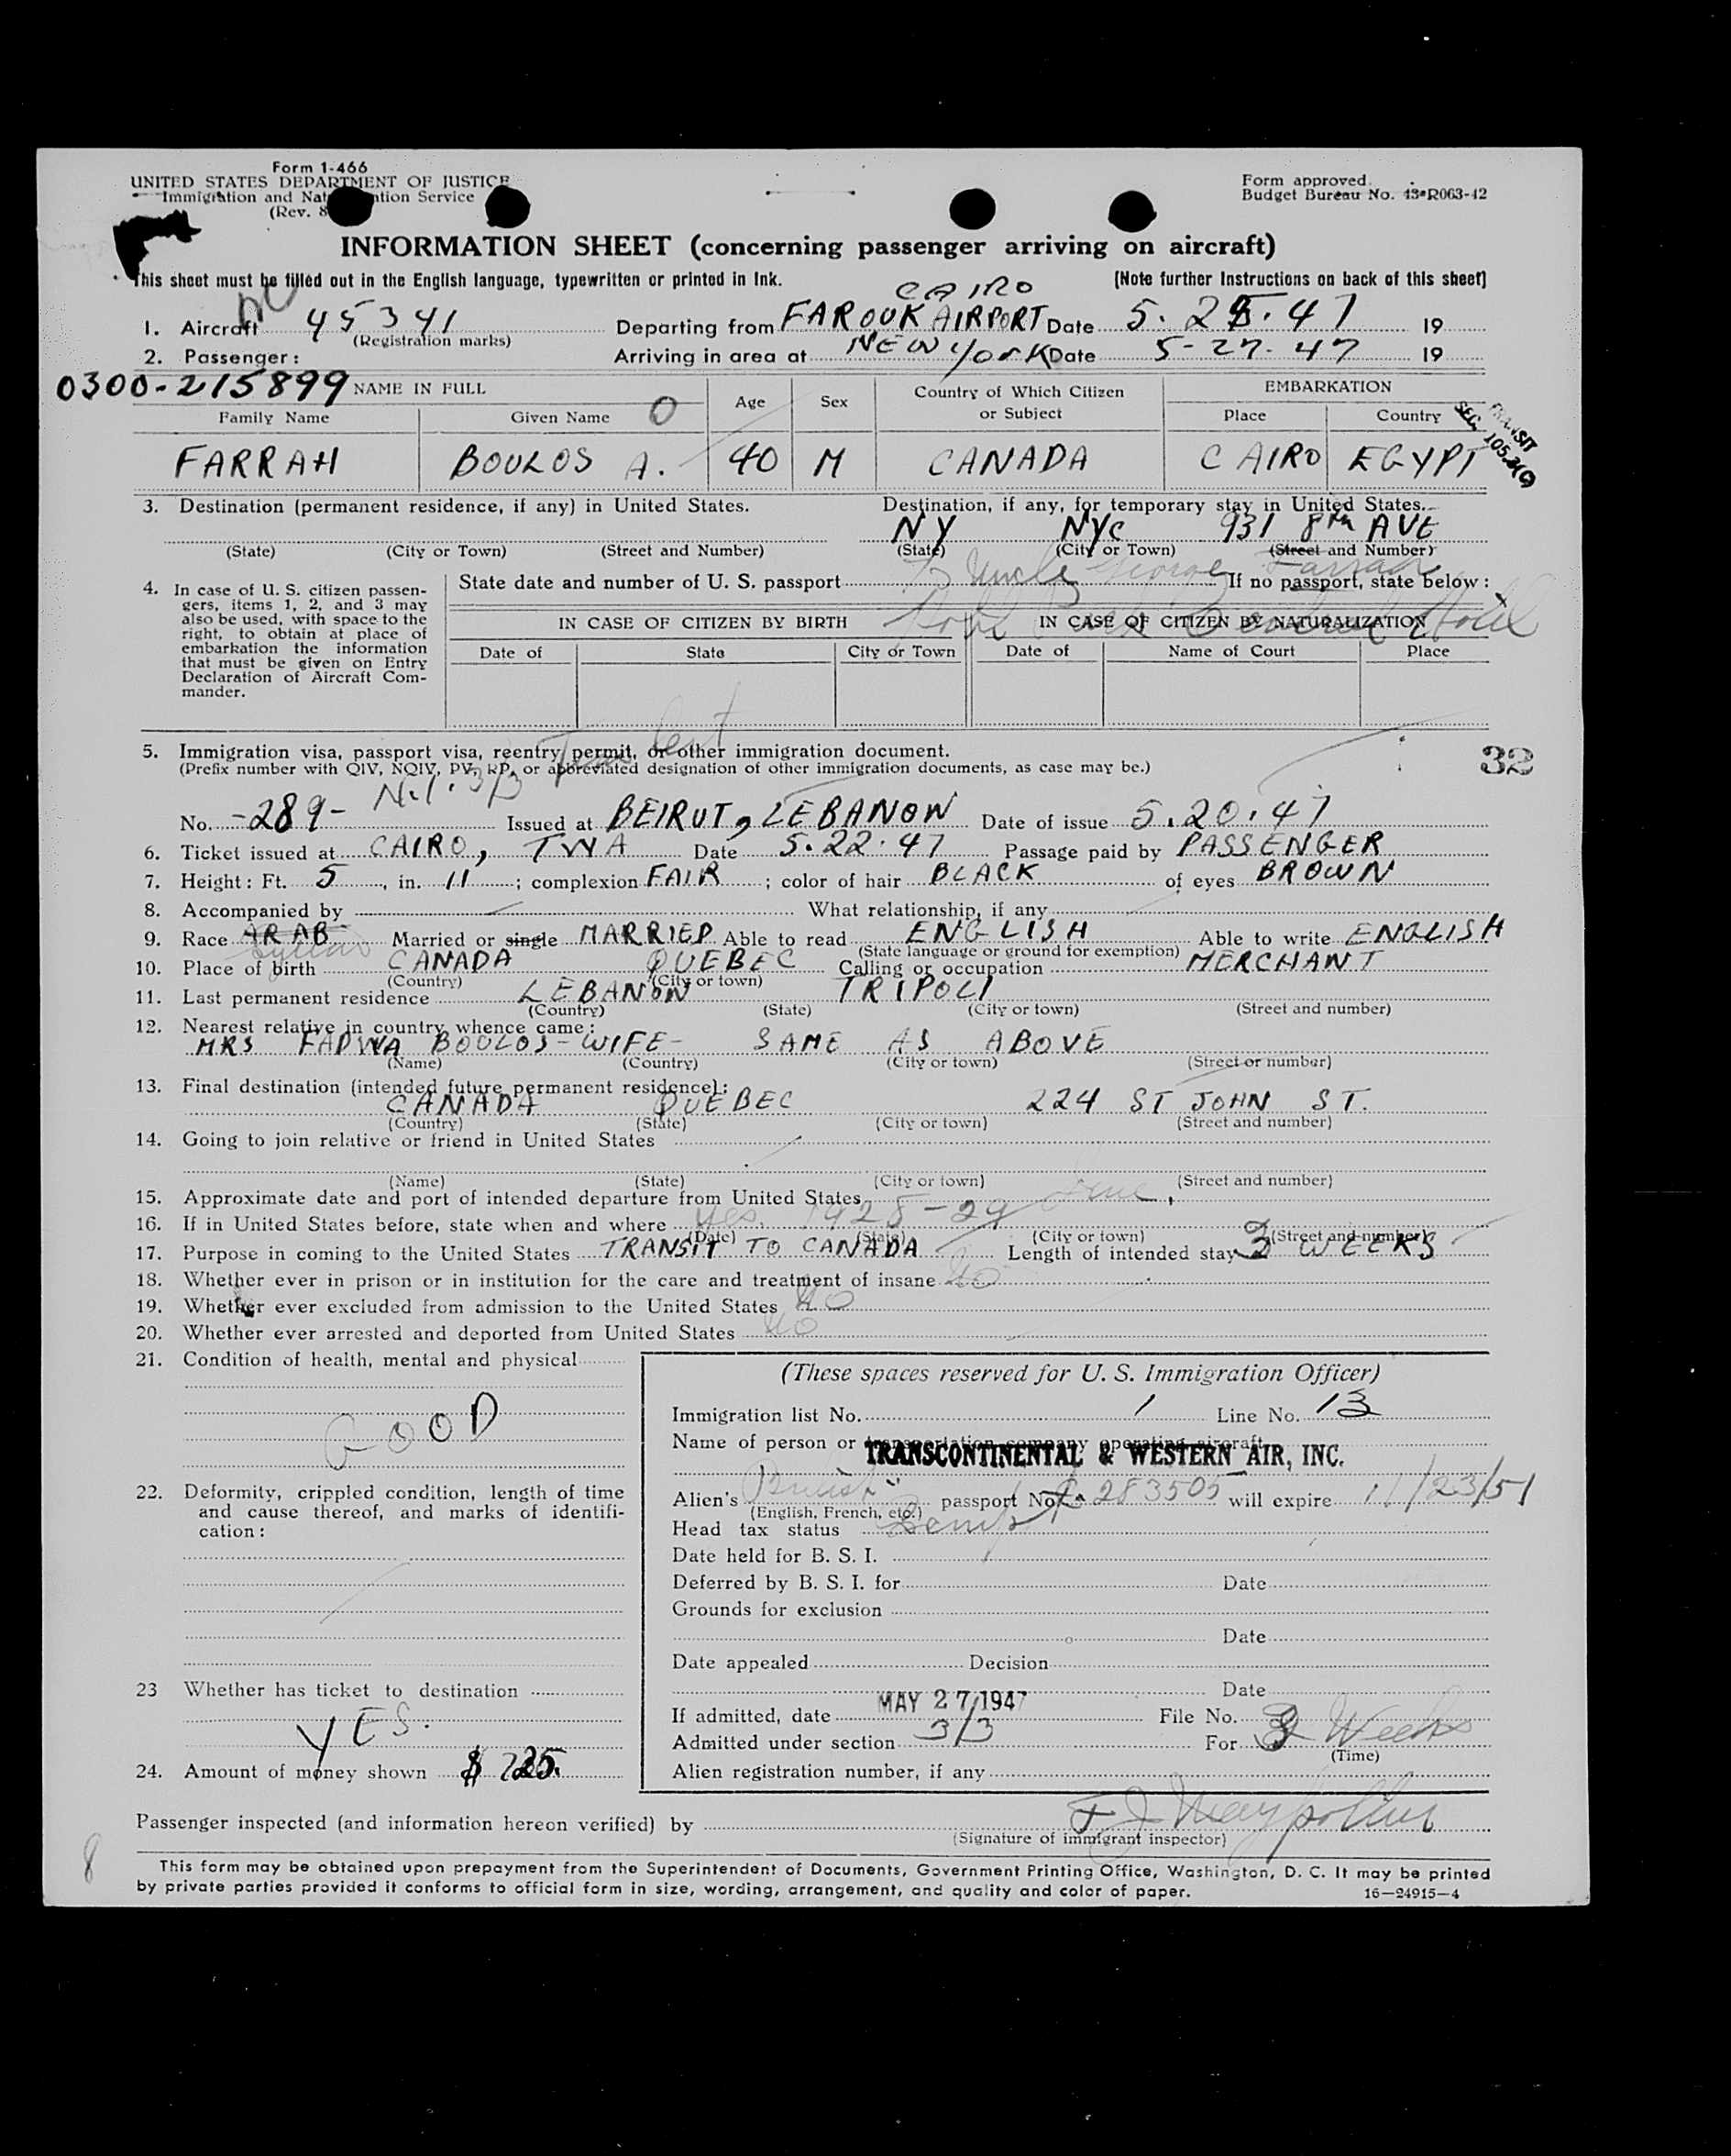 Form 1-466
UNITED STATES DEPARTMENT OF JUSTICE
Immigration and Nat ation Service
(Rev. 8
Form approved.
Budget Bureau No. 43-R063-42
INFORMATION SHEET (concerning passenger arriving on aircraft)
This sheet must be filled out in the English language, typewritten or printed in ink. [Note further Instructions on back of this sheet]
CAIRO
1. Aircraft NC 45341 Departing from FAROUK AIRPORT Date 5.25.47 19
(Registration marks)
2. Passenger: Arriving in area at NEW York Date 5-27-47 19
0300-215899 NAME IN FULL Age Sex Country of Which Citizen or Subject EMBARKATION
Family Name Given Name O Place Country
TRANSIT
SEC. 105.3(c)
FARRAH BOULOS A. 40 M CANADA CAIRO EGYPT
3. Destination (permanent residence, if any) in United States. Destination, if any, for temporary stay in United States.
NY NYC 931 8th AVE
(State) (City or Town) (Street and Number) (State) (City or Town) (Street and Number)
Uncle George Farrah
4. In case of U. S. citizen passengers, items 1, 2, and 3 may also be used, with space to the right, to obtain at place of embarkation the information that must be given on Entry Declaration of Aircraft Commander.
State date and number of U. S. passport If no passport, state below:
IN CASE OF CITIZEN BY BIRTH IN CASE OF CITIZEN BY NATURALIZATION
Hotel
Date of State City or Town Date of Name of Court Place
5. Immigration visa, passport visa, reentry permit, or other immigration document.
(Prefix number with QIV, NQIV, PV, RP, or abbreviated designation of other immigration documents, as case may be.)
32
N.I. 3/3
No. -289- Issued at BEIRUT, LEBANON Date of issue 5.20.47
6. Ticket issued at CAIRO, TWA Date 5.22.47 Passage paid by PASSENGER
7. Height: Ft. 5, in. 11; complexion FAIR; color of hair BLACK of eyes BROWN
8. Accompanied by What relationship, if any
9. Race ARAB Married or single MARRIED Able to read ENGLISH Able to write ENGLISH
Syrian
(State language or ground for exemption)
10. Place of birth CANADA QUEBEC Calling or occupation MERCHANT
(Country) (City or town)
11. Last permanent residence LEBANON TRIPOLI
(Country) (State) (City or town) (Street and number)
12. Nearest relative in country whence came:
MRS FADWA BOULOS - WIFE - SAME AS ABOVE
(Name) (Country) (City or town) (Street or number)
13. Final destination (intended future permanent residence):
CANADA QUEBEC 224 ST JOHN ST.
(Country) (State) (City or town) (Street and number)
14. Going to join relative or friend in United States
(Name) (State) (City or town) (Street and number)
15. Approximate date and port of intended departure from United States June,
16. If in United States before, state when and where yes. 1928-29
(Date) (State) (City or town) (Street and number)
17. Purpose in coming to the United States TRANSIT TO CANADA Length of intended stay 3 WEEKS
18. Whether ever in prison or in institution for the care and treatment of insane No
19. Whether ever excluded from admission to the United States No
20. Whether ever arrested and deported from United States No
21. Condition of health, mental and physical
GOOD
22. Deformity, crippled condition, length of time and cause thereof, and marks of identification:
23 Whether has ticket to destination
YES.
24. Amount of money shown $ 725.
(These spaces reserved for U. S. Immigration Officer)
Immigration list No. 1 Line No. 13
Name of person or transportation company operating aircraft
TRANSCONTINENTAL & WESTERN AIR, INC.
Alien's British passport No. 283505 will expire 11/23/51
(English, French, etc.)
Head tax status
Date held for B. S. I.
Deferred by B. S. I. for Date
Grounds for exclusion
Date
Date appealed Decision
Date
If admitted, date MAY 27 1947 File No.
Admitted under section 3/3 For 3 Weeks
(Time)
Alien registration number, if any
Passenger inspected (and information hereon verified) by
(Signature of immigrant inspector)
8
This form may be obtained upon prepayment from the Superintendent of Documents, Government Printing Office, Washington, D. C. It may be printed
by private parties provided it conforms to official form in size, wording, arrangement, and quality and color of paper. 16—24915—4